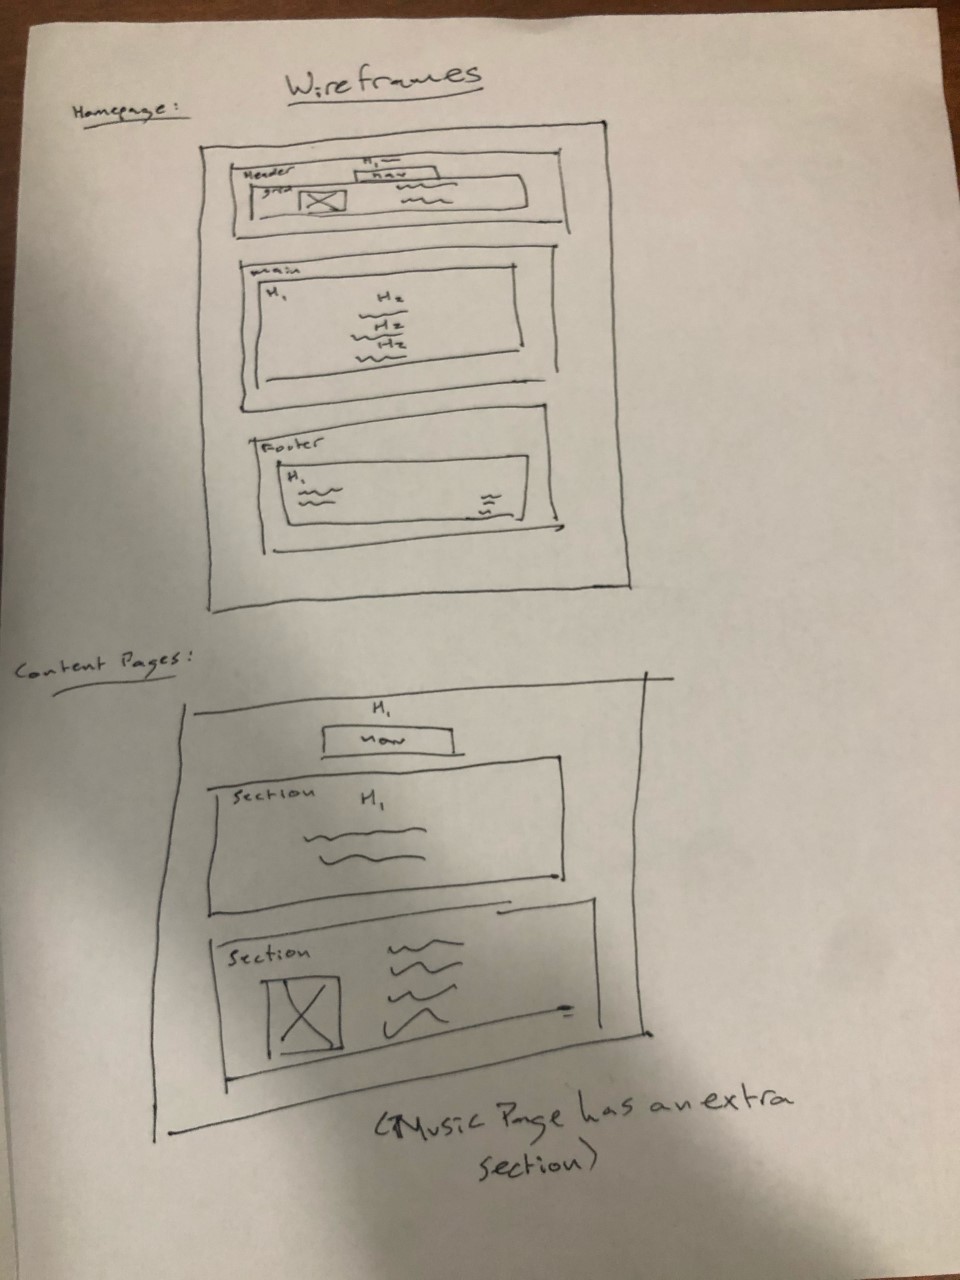 Wireframes
Homepage:
H1
Header
nav
grid
main
H1
H2
H2
H2
Footer
H1
Content Pages:
H1
nav
Section
H1
Section
(Music Page has an extra
section)